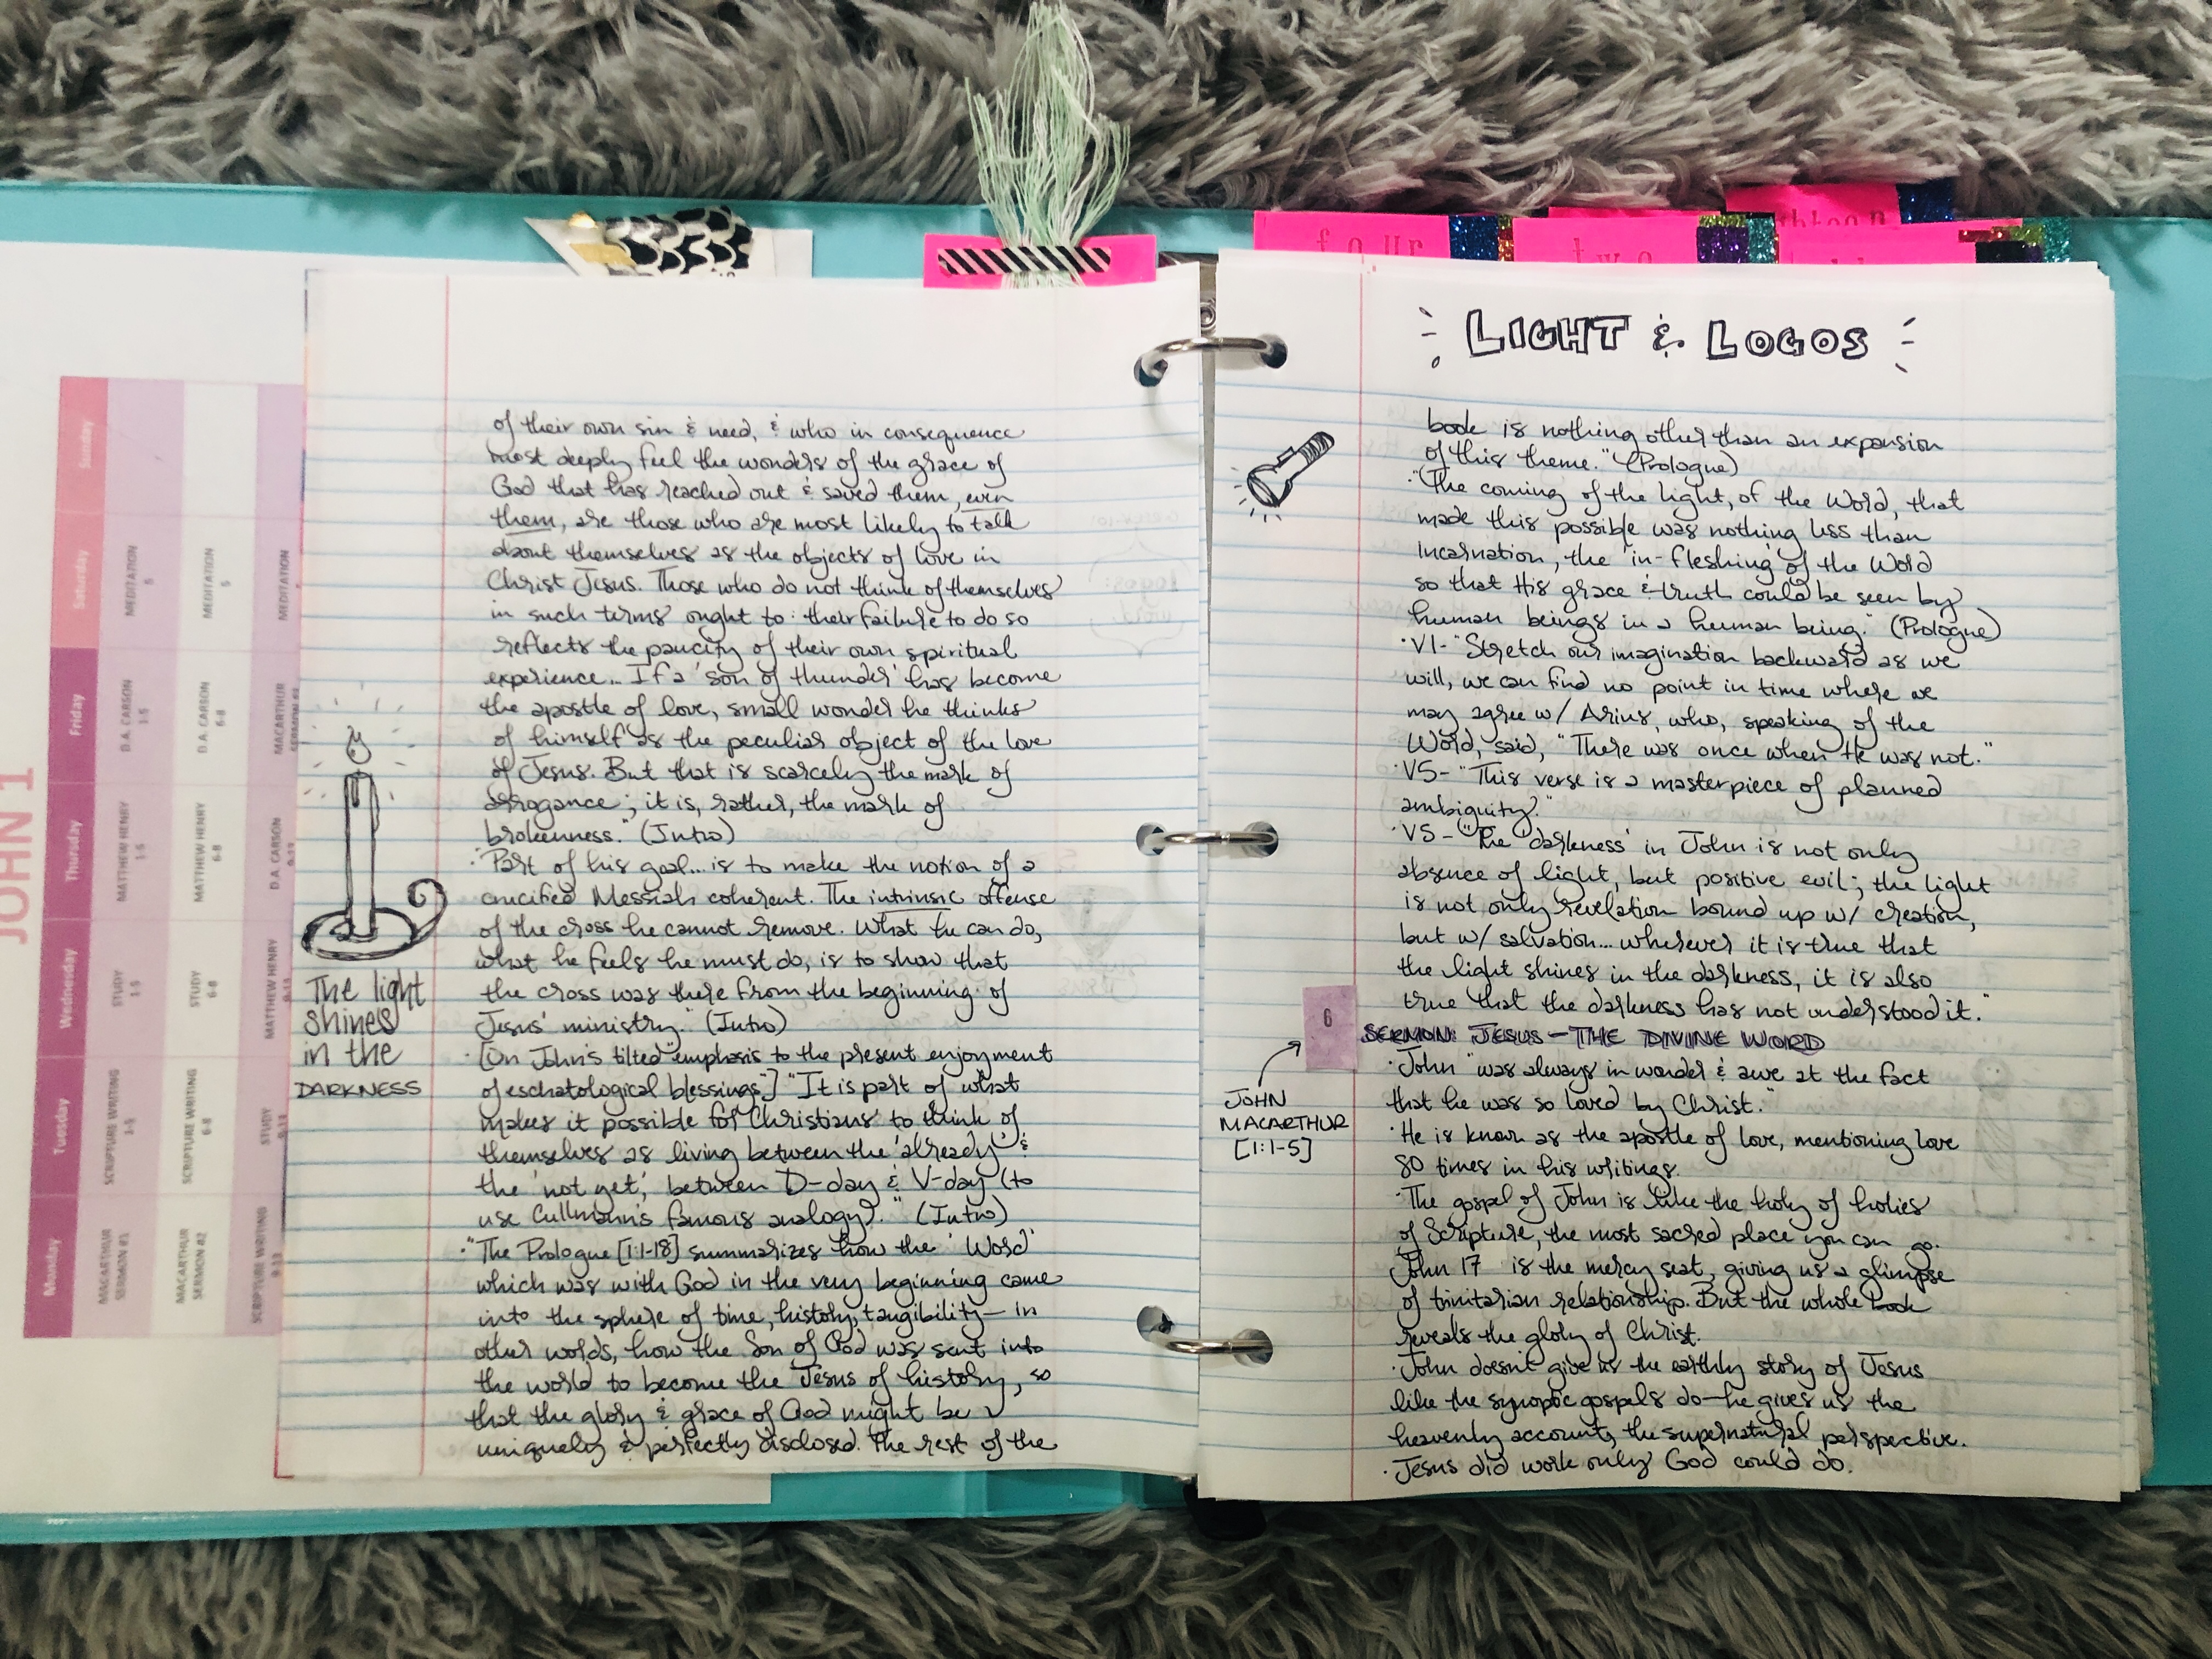 four
two
JOHN 1
Sunday
Saturday
MEDITATION
5
MEDITATION
5
MEDITATION
Friday
D.A. CARSON
1-5
D.A. CARSON
6-8
MACARTHUR
Thursday
MATTHEW HENRY
1-5
MATTHEW HENRY
6-8
D.A. CARSON
9-13
Wednesday
STUDY
1-5
STUDY
6-8
MATTHEW HENRY
9-13
Tuesday
SCRIPTURE WRITING
1-5
SCRIPTURE WRITING
6-8
STUDY
9-13
Monday
MACARTHUR
SERMON #1
MACARTHUR
SERMON #2
SCRIPTURE WRITING
9-13
The light
shines
in the
DARKNESS
of their own sin & need, & who in consequence
most deeply feel the wonders of the grace of
God that has reached out & saved them, even
them, are those who are most likely to talk
about themselves as the objects of love in
Christ Jesus. Those who do not think of themselves
in such terms ought to: their failure to do so
reflects the paucity of their own spiritual
experience... If a 'son of thunder' has become
the apostle of love, small wonder he thinks
of himself as the peculiar object of the love
of Jesus. But that is scarcely the mark of
arrogance; it is, rather, the mark of
brokenness." (Intro)
·"Part of his goal... is to make the notion of a
crucified Messiah coherent. The intrinsic offense
of the cross he cannot remove. What he can do,
what he feels he must do, is to show that
the cross was there from the beginning of
Jesus' ministry." (Intro)
·[On John's tilted "emphasis to the present enjoyment
of eschatological blessings"] "It is part of what
makes it possible for Christians to think of
themselves as living between the 'already' &
the 'not yet,' between D-day & V-day (to
use Cullmann's famous analogy)." (Intro)
·"The Prologue [1:1-18] summarizes how the 'Word'
which was with God in the very beginning came
into the sphere of time, history, tangibility—in
other words, how the Son of God was sent into
the world to become the Jesus of history, so
that the glory & grace of God might be
uniquely & perfectly disclosed. The rest of the
LIGHT & LOGOS
book is nothing other than an expansion
of this theme." (Prologue)
·"The coming of the light, of the Word, that
made this possible was nothing less than
incarnation, the 'in-fleshing' of the Word
so that His grace & truth could be seen by
human beings in a human being." (Prologue)
·V1- "Stretch our imagination backward as we
will, we can find no point in time where we
may agree w/ Arius, who, speaking of the
Word, said, "There was once when He was not."
·V5- "This verse is a masterpiece of planned
ambiguity."
·V5- "The 'darkness' in John is not only
absence of light, but positive evil; the light
is not only revelation bound up w/ creation,
but w/ salvation... wherever it is true that
the light shines in the darkness, it is also
true that the darkness has not understood it."
6
SERMON: JESUS—THE DIVINE WORD
JOHN
MACARTHUR
[1:1-5]
·John "was always in wonder & awe at the fact
that he was so loved by Christ."
·He is known as the apostle of love, mentioning love
80 times in his writings.
·The gospel of John is like the holy of holies
of Scripture, the most sacred place you can go.
John 17 is the mercy seat, giving us a glimpse
of trinitarian relationship. But the whole book
reveals the glory of Christ.
·John doesn't give us the earthly story of Jesus
like the synoptic gospels do—he gives us the
heavenly account, the supernatural perspective.
·Jesus did work only God could do.